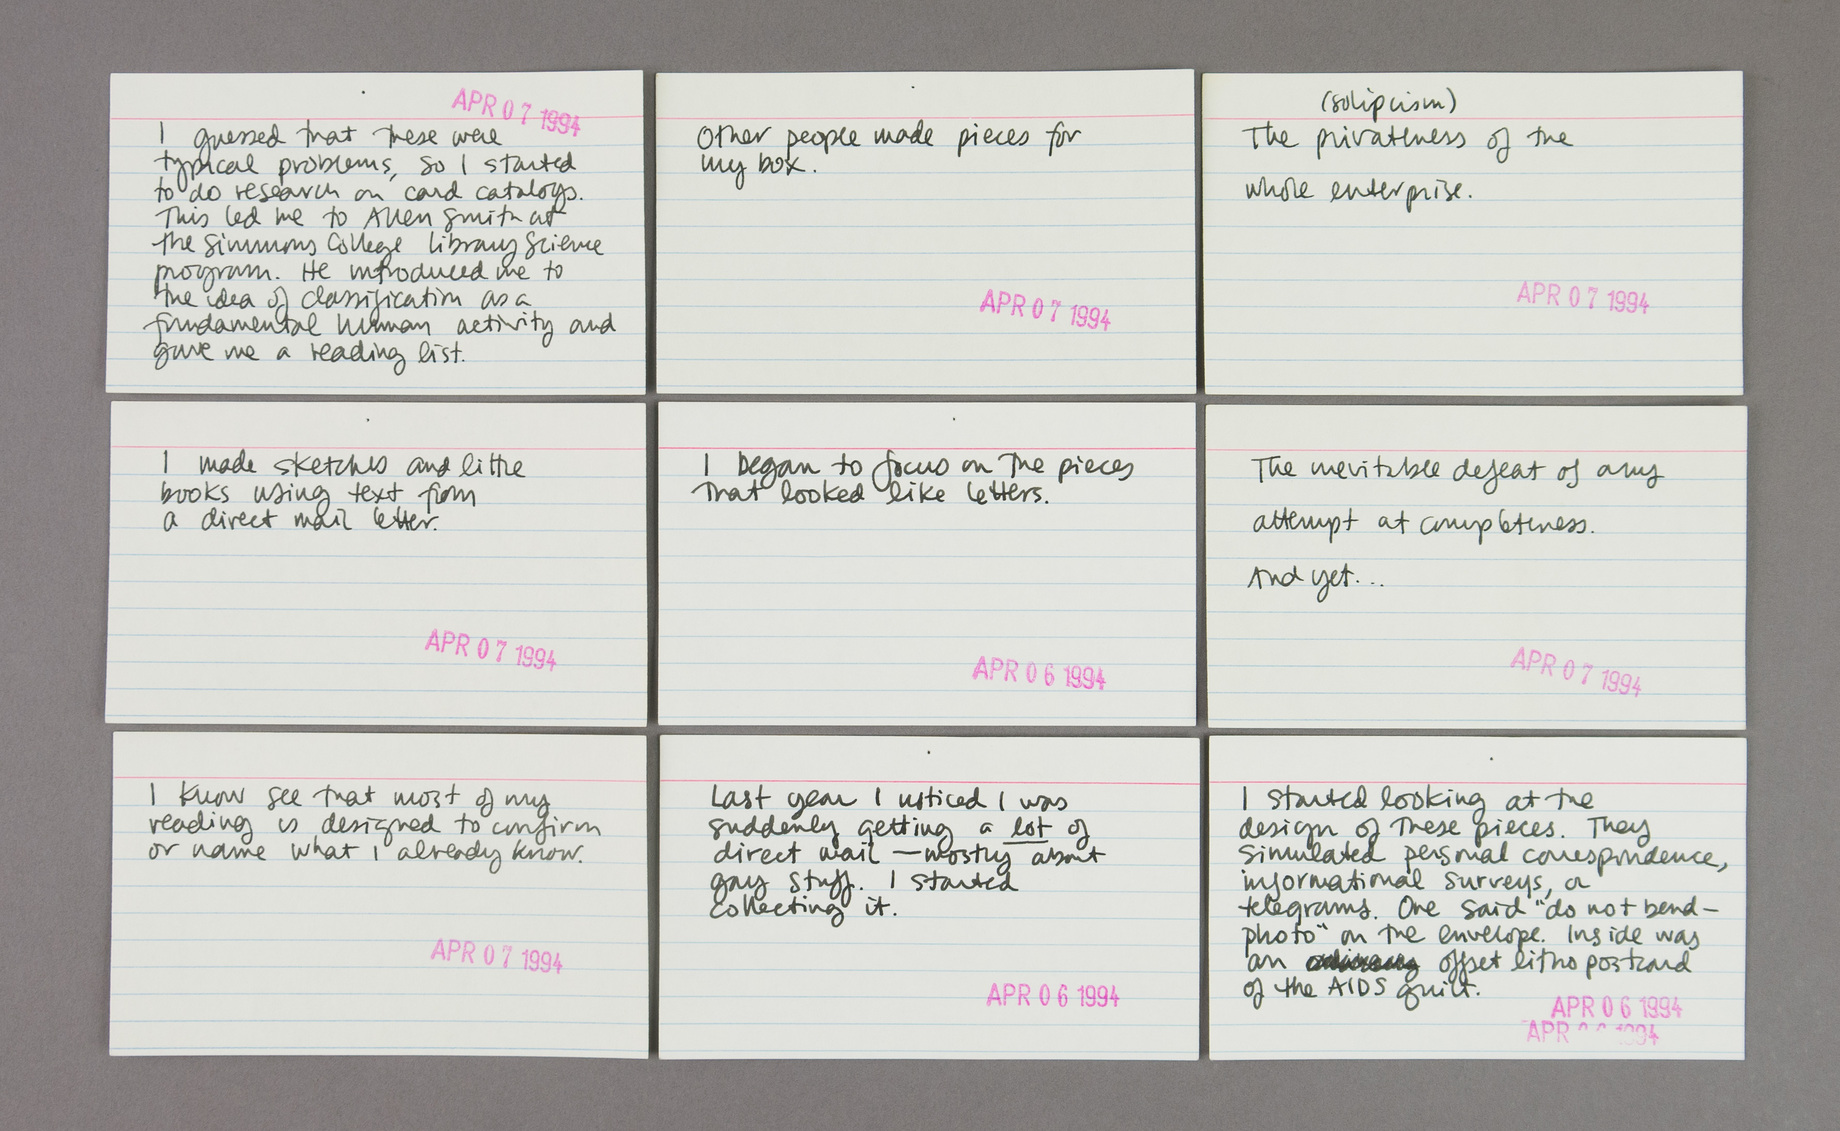 APR 07 1994
I guessed that these were
typical problems, so I started
to do research on card catalogs.
This led me to Allen Smith at
the Simmons College Library Science
program. He introduced me to
the idea of classification as a
fundamental human activity and
gave me a reading list.
Other people made pieces for
my box.
APR 07 1994
(solipcism)
The privateness of the
whole enterprise.
APR 07 1994
I made sketches and little
books using text from
a direct mail letter.
APR 07 1994
I began to focus on the pieces
that looked like letters.
APR 06 1994
The inevitable defeat of any
attempt at completeness.
And yet...
APR 07 1994
I know see that most of my
reading is designed to confirm
or name what I already know.
APR 07 1994
Last year I noticed I was
suddenly getting a lot of
direct mail — mostly about
gay stuff. I started
collecting it.
APR 06 1994
I started looking at the
design of these pieces. They
simulated personal correspondence,
informational surveys, or
telegrams. One said "do not bend –
photo" on the envelope. Inside was
an offset litho postcard
of the AIDS quilt.
APR 06 1994
APR 1994